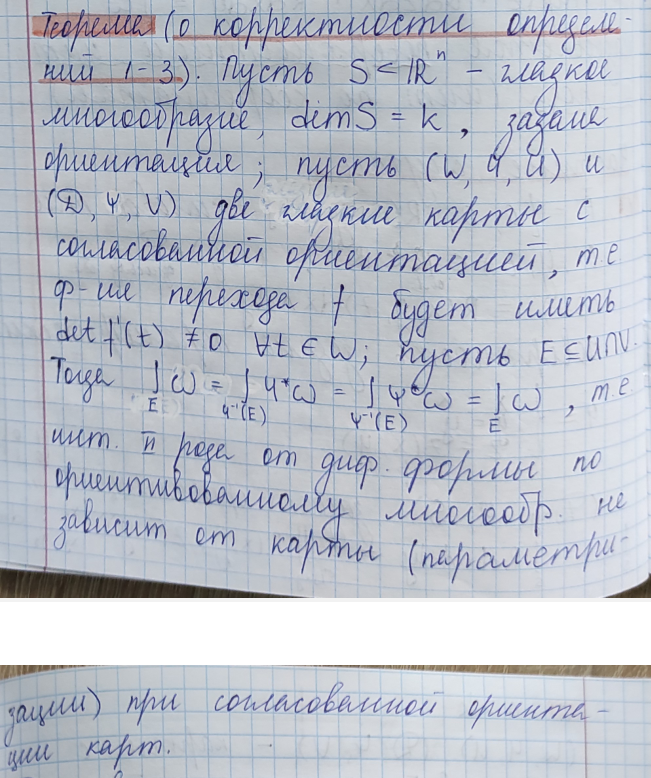 Теорема (о корректности определе-
ний 1-3). Пусть S ⊂ ℝⁿ - гладкое
многообразие, dim S = k, задана
ориентация; пусть (W, φ, U) и
(D, ψ, V) две гладкие карты с
согласованной ориентацией, т.е
ф-ие перехода f будет иметь
det f'(t) ≠ 0 ∀t ∈ W; пусть E ⊆ U∩V.
Тогда ∫_E ω = ∫_{φ⁻¹(E)} φ*ω = ∫_{ψ⁻¹(E)} ψ*ω = ∫_E ω, т.е
инт. II рода от диф. формы по
ориентивованному многообр. не
зависит от карты (параметри-
зации) при согласованной ориента-
ции карт.